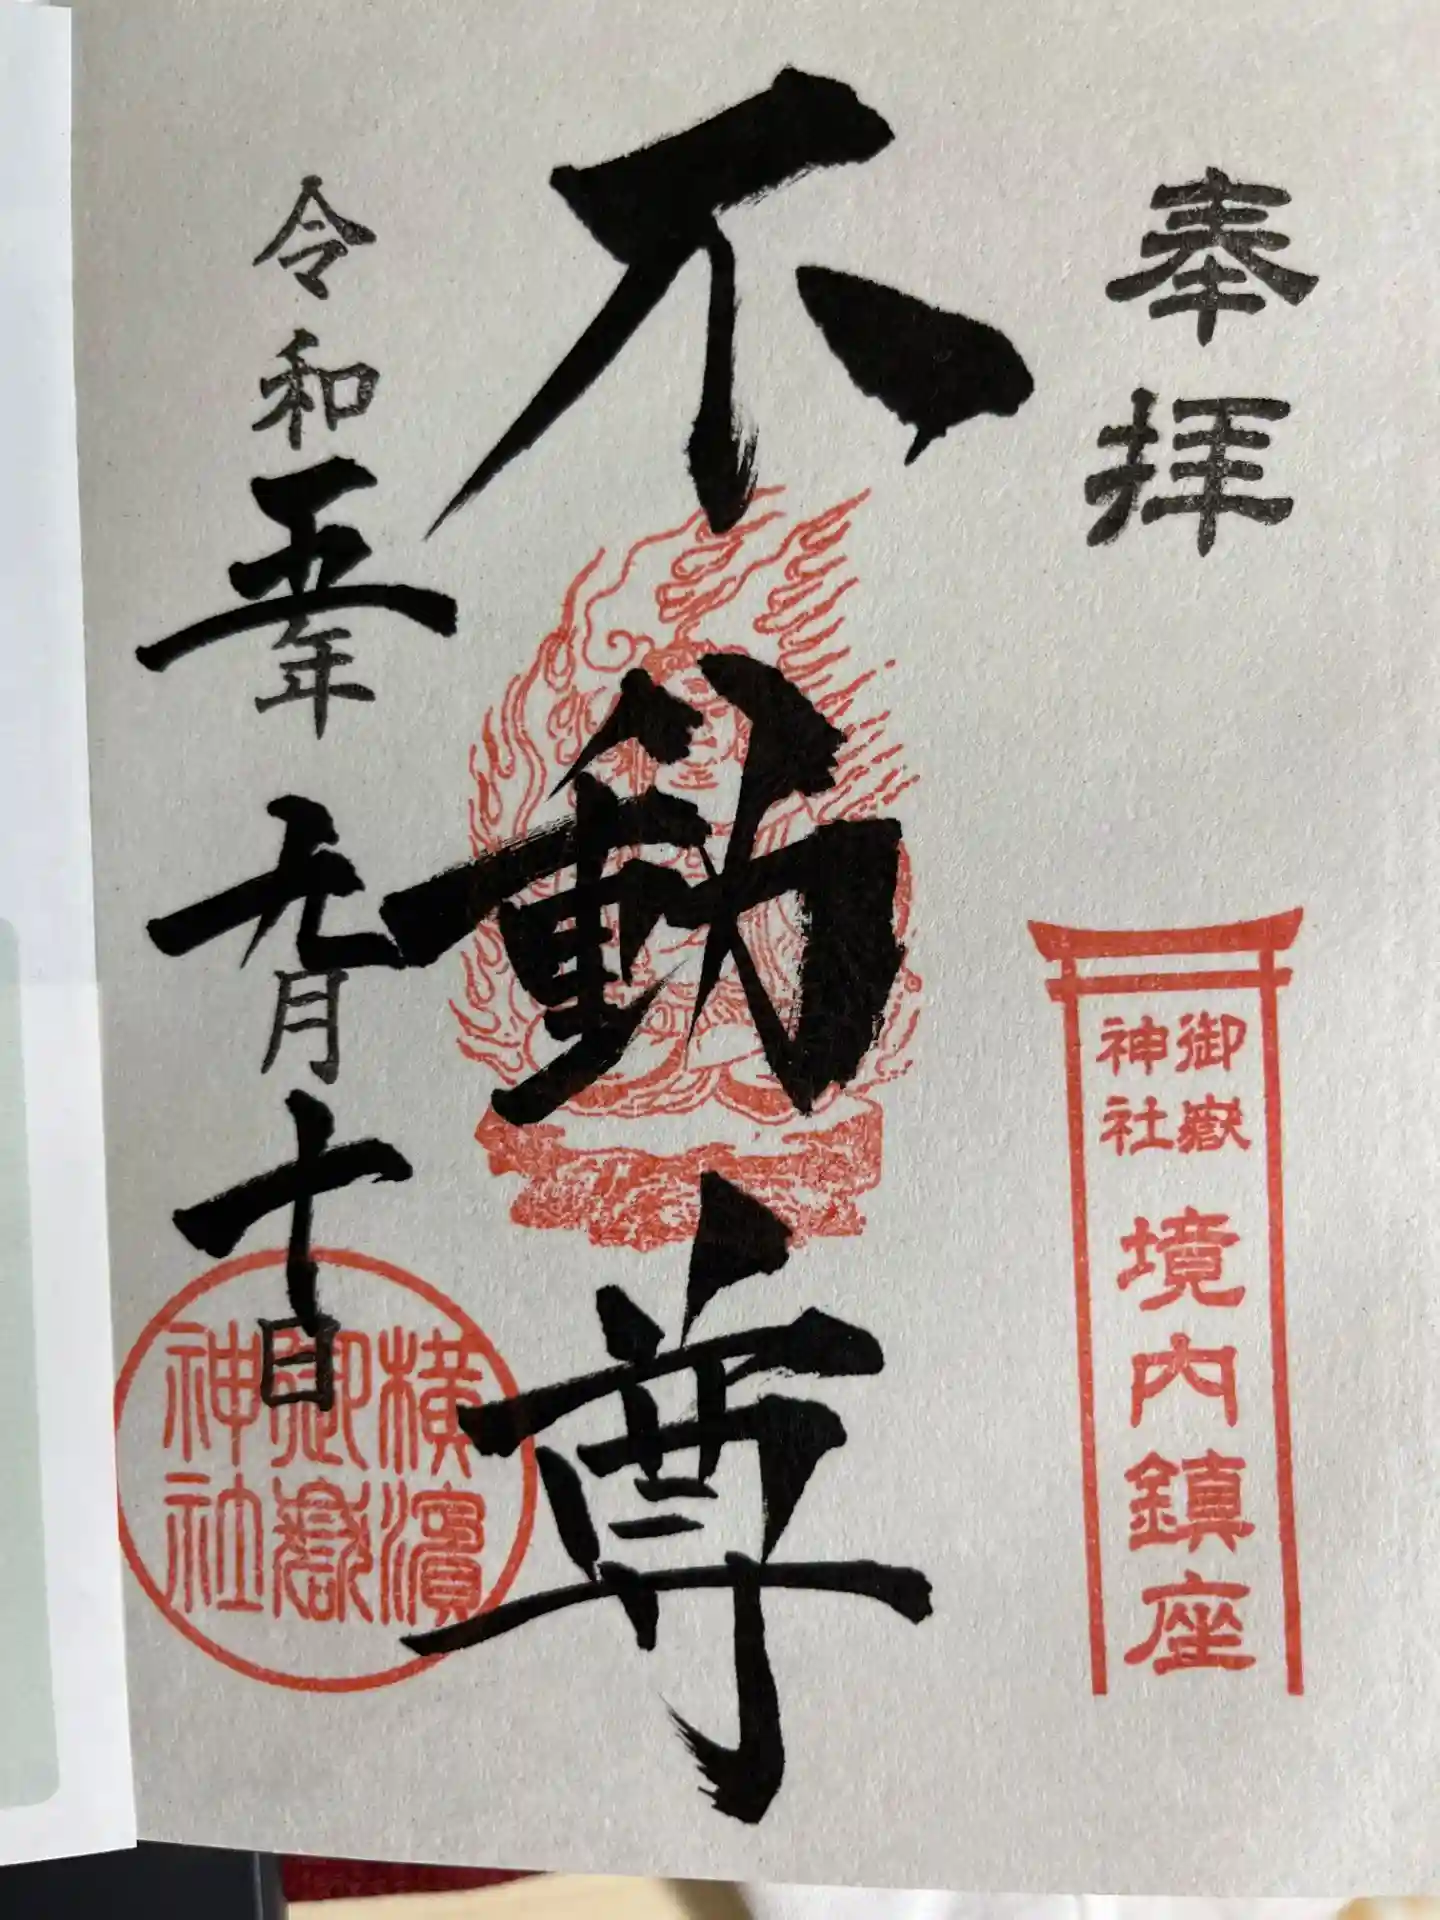 奉拝
御嶽
神社
境内鎮座
不動尊
令和五年九月十日
横濱
御嶽
神社